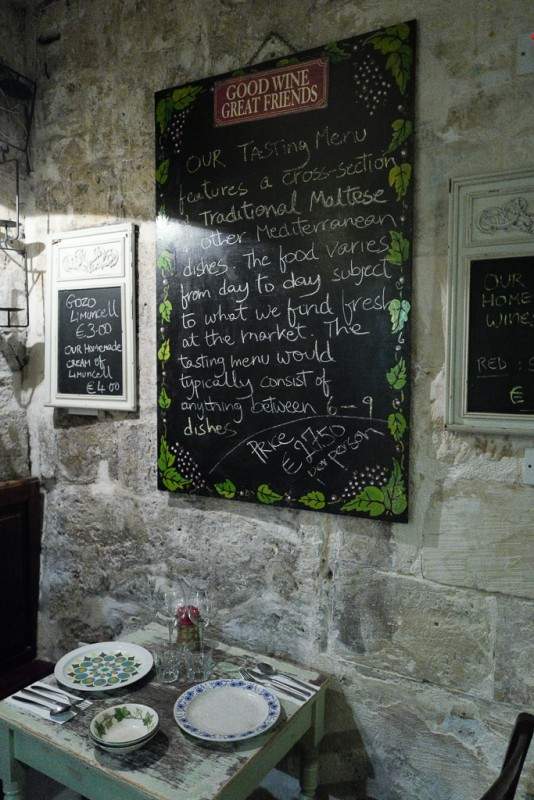 GOOD WINE
GREAT FRIENDS
OUR TASTING MENU
features a cross-section
Traditional Maltese
other Mediterranean
dishes. The food varies
from day to day subject
to what we find fresh
at the market. The
tasting menu would
typically consist of
anything between 6-9
dishes
PRICE
€27.50
per person
GOZO
LIMUNCELL
€3.00
OUR HOMEMADE
CREAM OF
LIMUNCELL
€4.00
OUR
HOME
WINES
RED : 
€